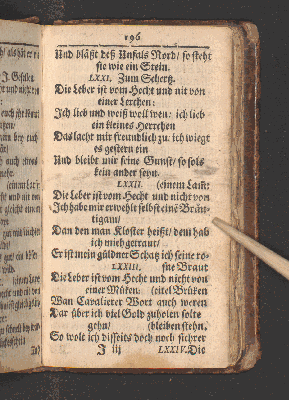 196
Und bläßt deß Unfals Nord/ so steht
sie wie ein Stein.
LXXI. Zum Schertz.
Die Leber ist vom Hecht und nit von
einer Lerchen:
Ich lieb und weiß well wen: ich lieb
ein kleines Herrchen
Das lacht mir freundlich zu/ ich wiegt
es gestern ein
Und bleibt mir seine Gunst/ so sols
kein ander seyn.
LXXII. (einem Lamt
Die Leber ist vom Hecht und nicht von
Ich habe mir erwehlt selbst eine Bräu-
tigam/
Dan den man Kloster heißt/ dem hab
ich mich getraut/
Er ist mein güldner Schatz ich seine ro-
LXXIII. ſne Braut
Die Leber ist vom Hecht und nicht von
einer Müken: (eitel Brüken
Wan Cavalierer Wort auch weren
Dar über ich viel Gold zuholen solte
gehn/ (bleiben stehn.
So wolt ich disseits doch noch sichrer
J iij LXXIV. Die